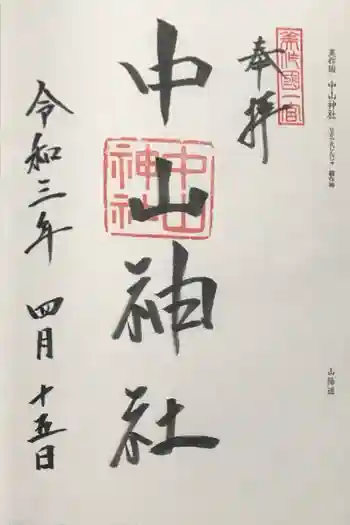 美作國 中山神社
山陽道
美作國一宮
奉拝
中山神社
中山神社
令和三年 四月 十五日